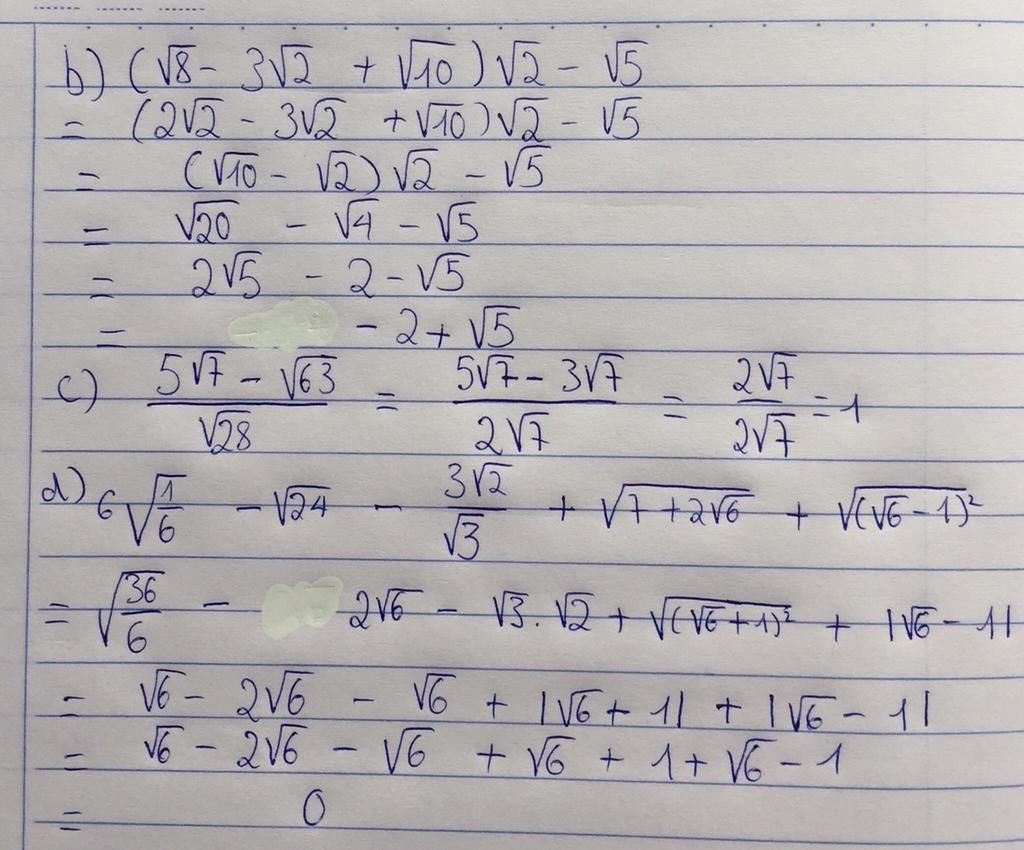 b) (√8 - 3√2 + √10)√2 - √5
= (2√2 - 3√2 + √10)√2 - √5
= (√10 - √2)√2 - √5
= √20 - √4 - √5
= 2√5 - 2 - √5
= - 2 + √5
c) (5√7 - √63)/√28 = (5√7 - 3√7)/(2√7) = (2√7)/(2√7) = 1
d) 6√(1/6) - √24 - (3√2)/√3 + √(7 + 2√6) + √((√6 - 1)²)
= √(36/6) - 2√6 - √3 . √2 + √((√6 + 1)²) + |√6 - 1|
= √6 - 2√6 - √6 + |√6 + 1| + |√6 - 1|
= √6 - 2√6 - √6 + √6 + 1 + √6 - 1
= 0